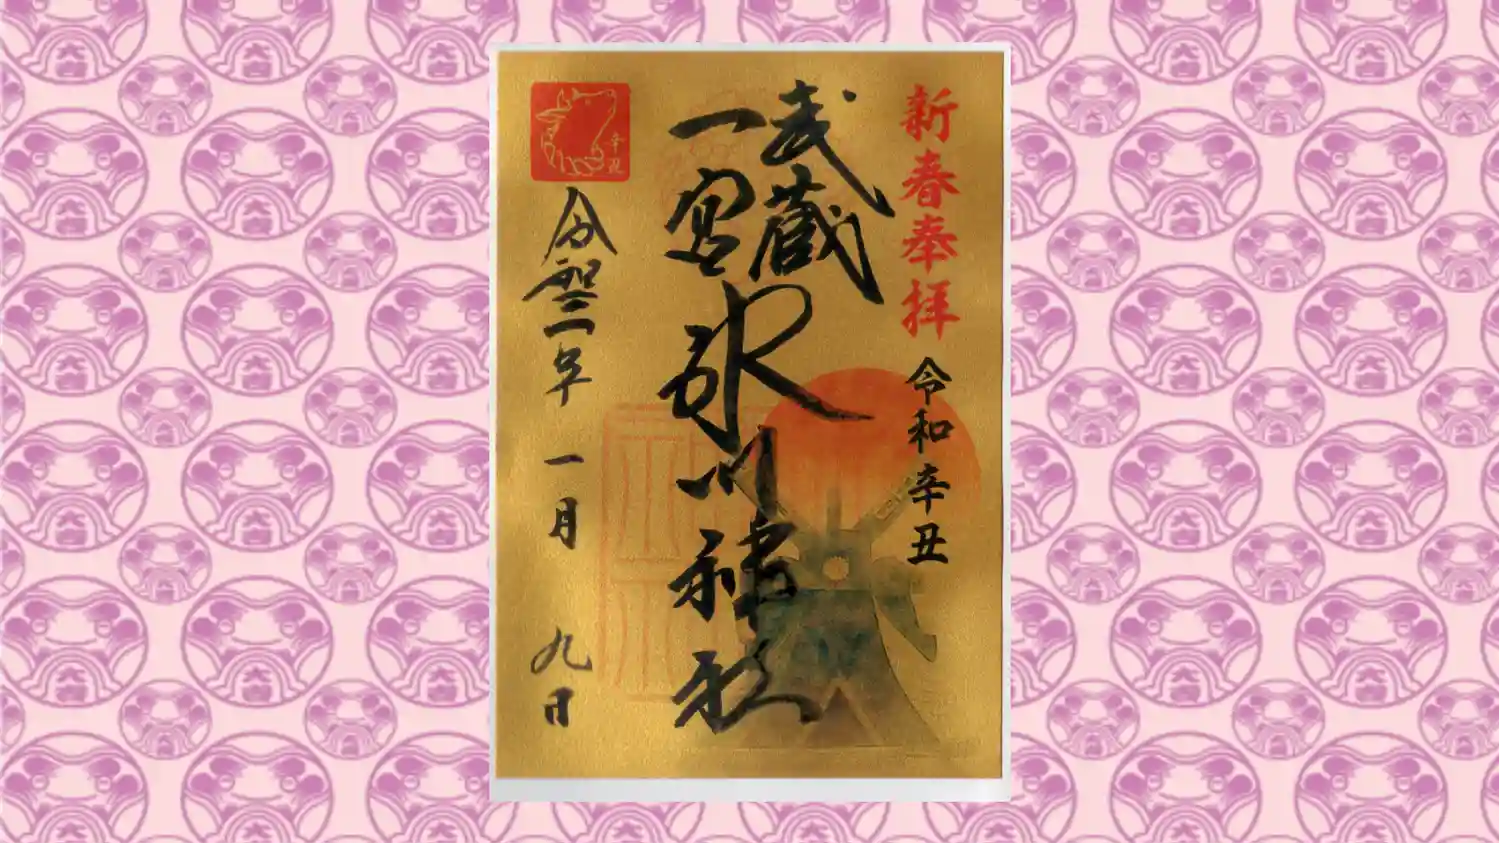 新春奉拝
令和辛丑
武蔵
一宮
氷川神社
令和三年 一月 九日
辛丑